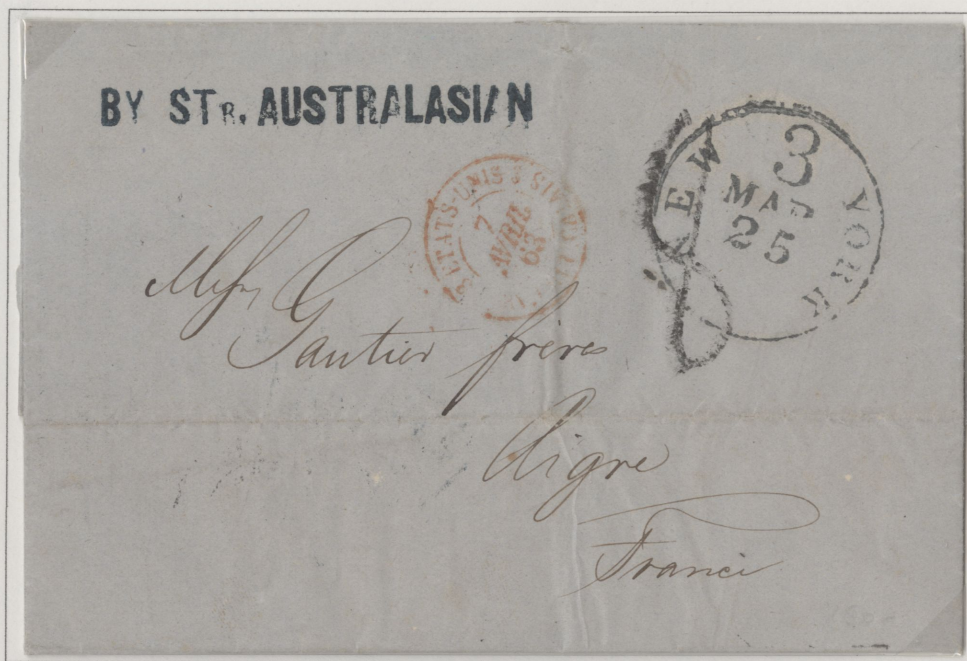 BY STR. AUSTRALASIAN
NEW YORK
3
MAR
25
ETATS-UNIS
7
AVRIL
63
8
Messrs Gautier frères
Aigre
France